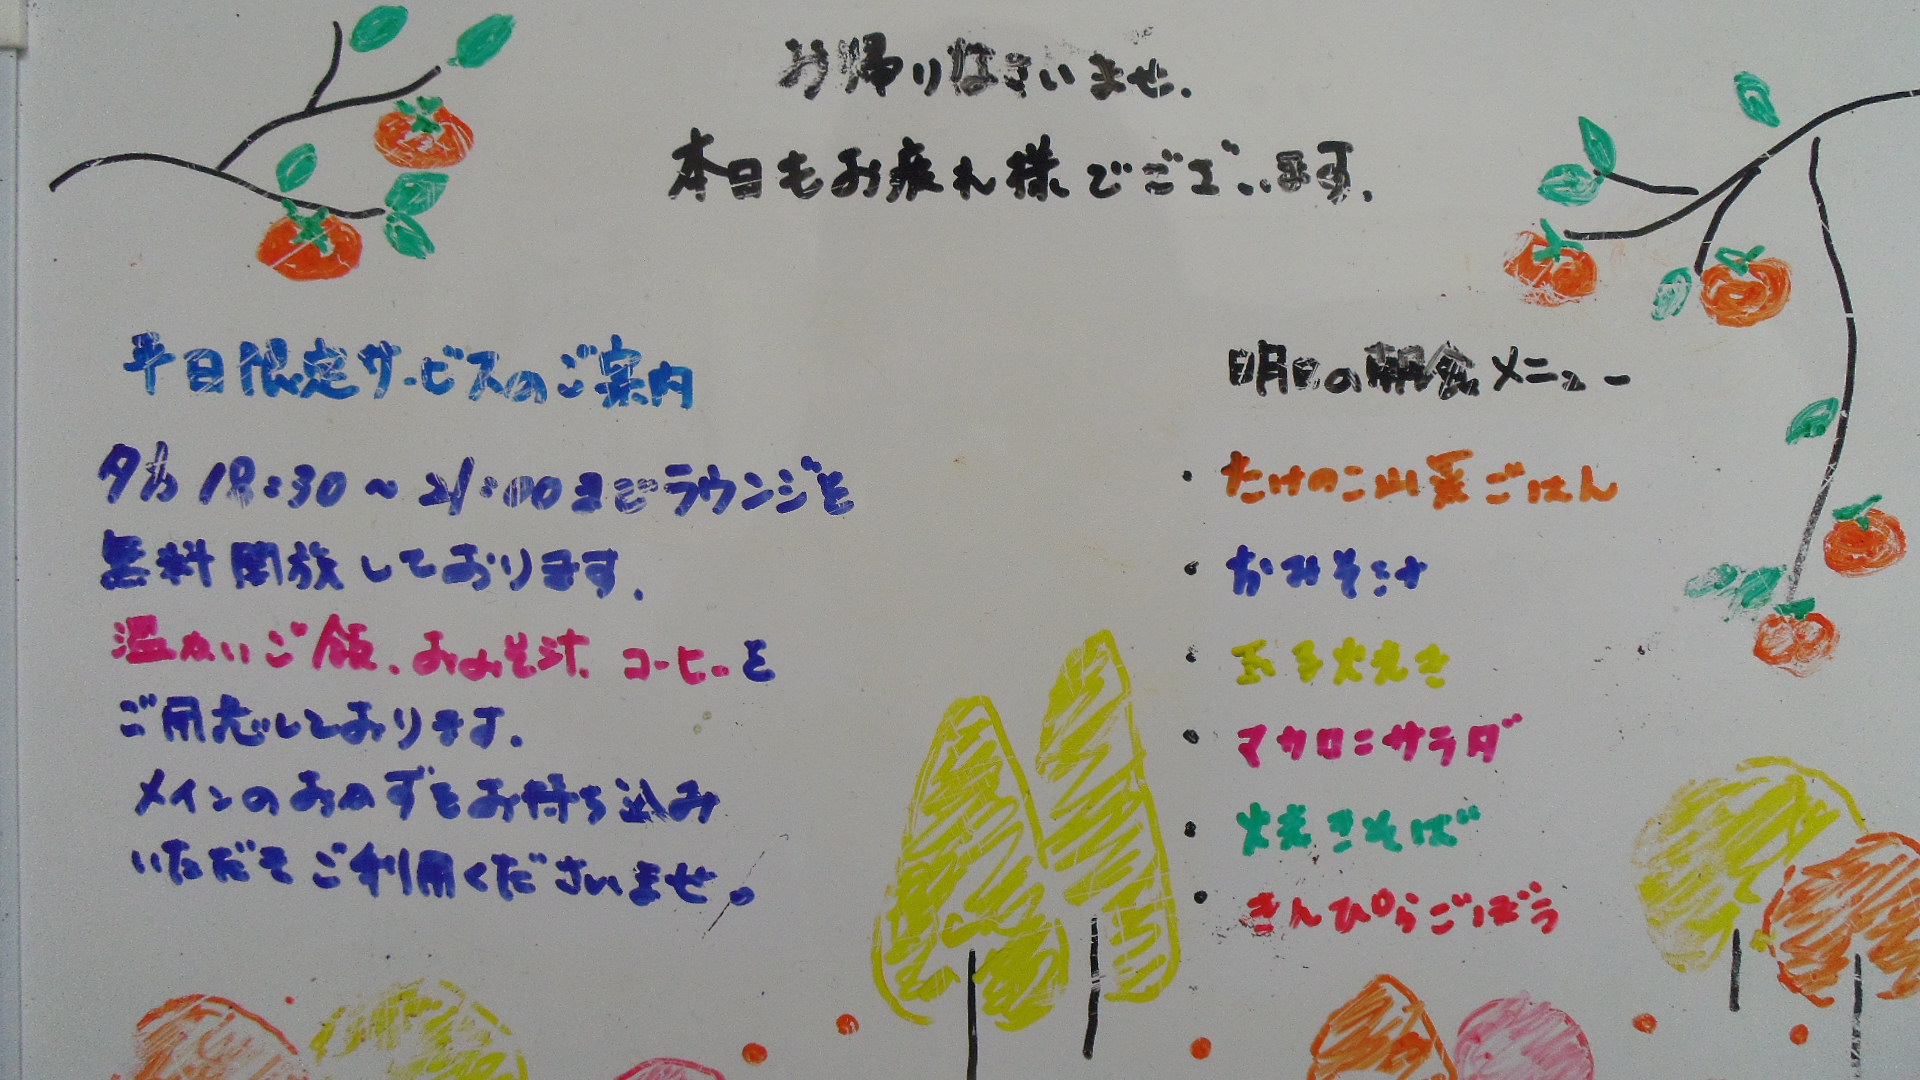 お帰りなさいませ.
本日もお疲れ様でございます.
平日限定サービスのご案内
夕方 18:30～21:00までラウンジを
無料開放しております.
温かいご飯、おみそ汁、コーヒーを
ご用意しております.
メインのおかずをお持ち込み
いただきご利用くださいませ。
明日の朝食メニュー
・たけのこ山菜ごはん
・おみそ汁
・玉子焼き
・マカロニサラダ
・焼きそば
・きんぴらごぼう